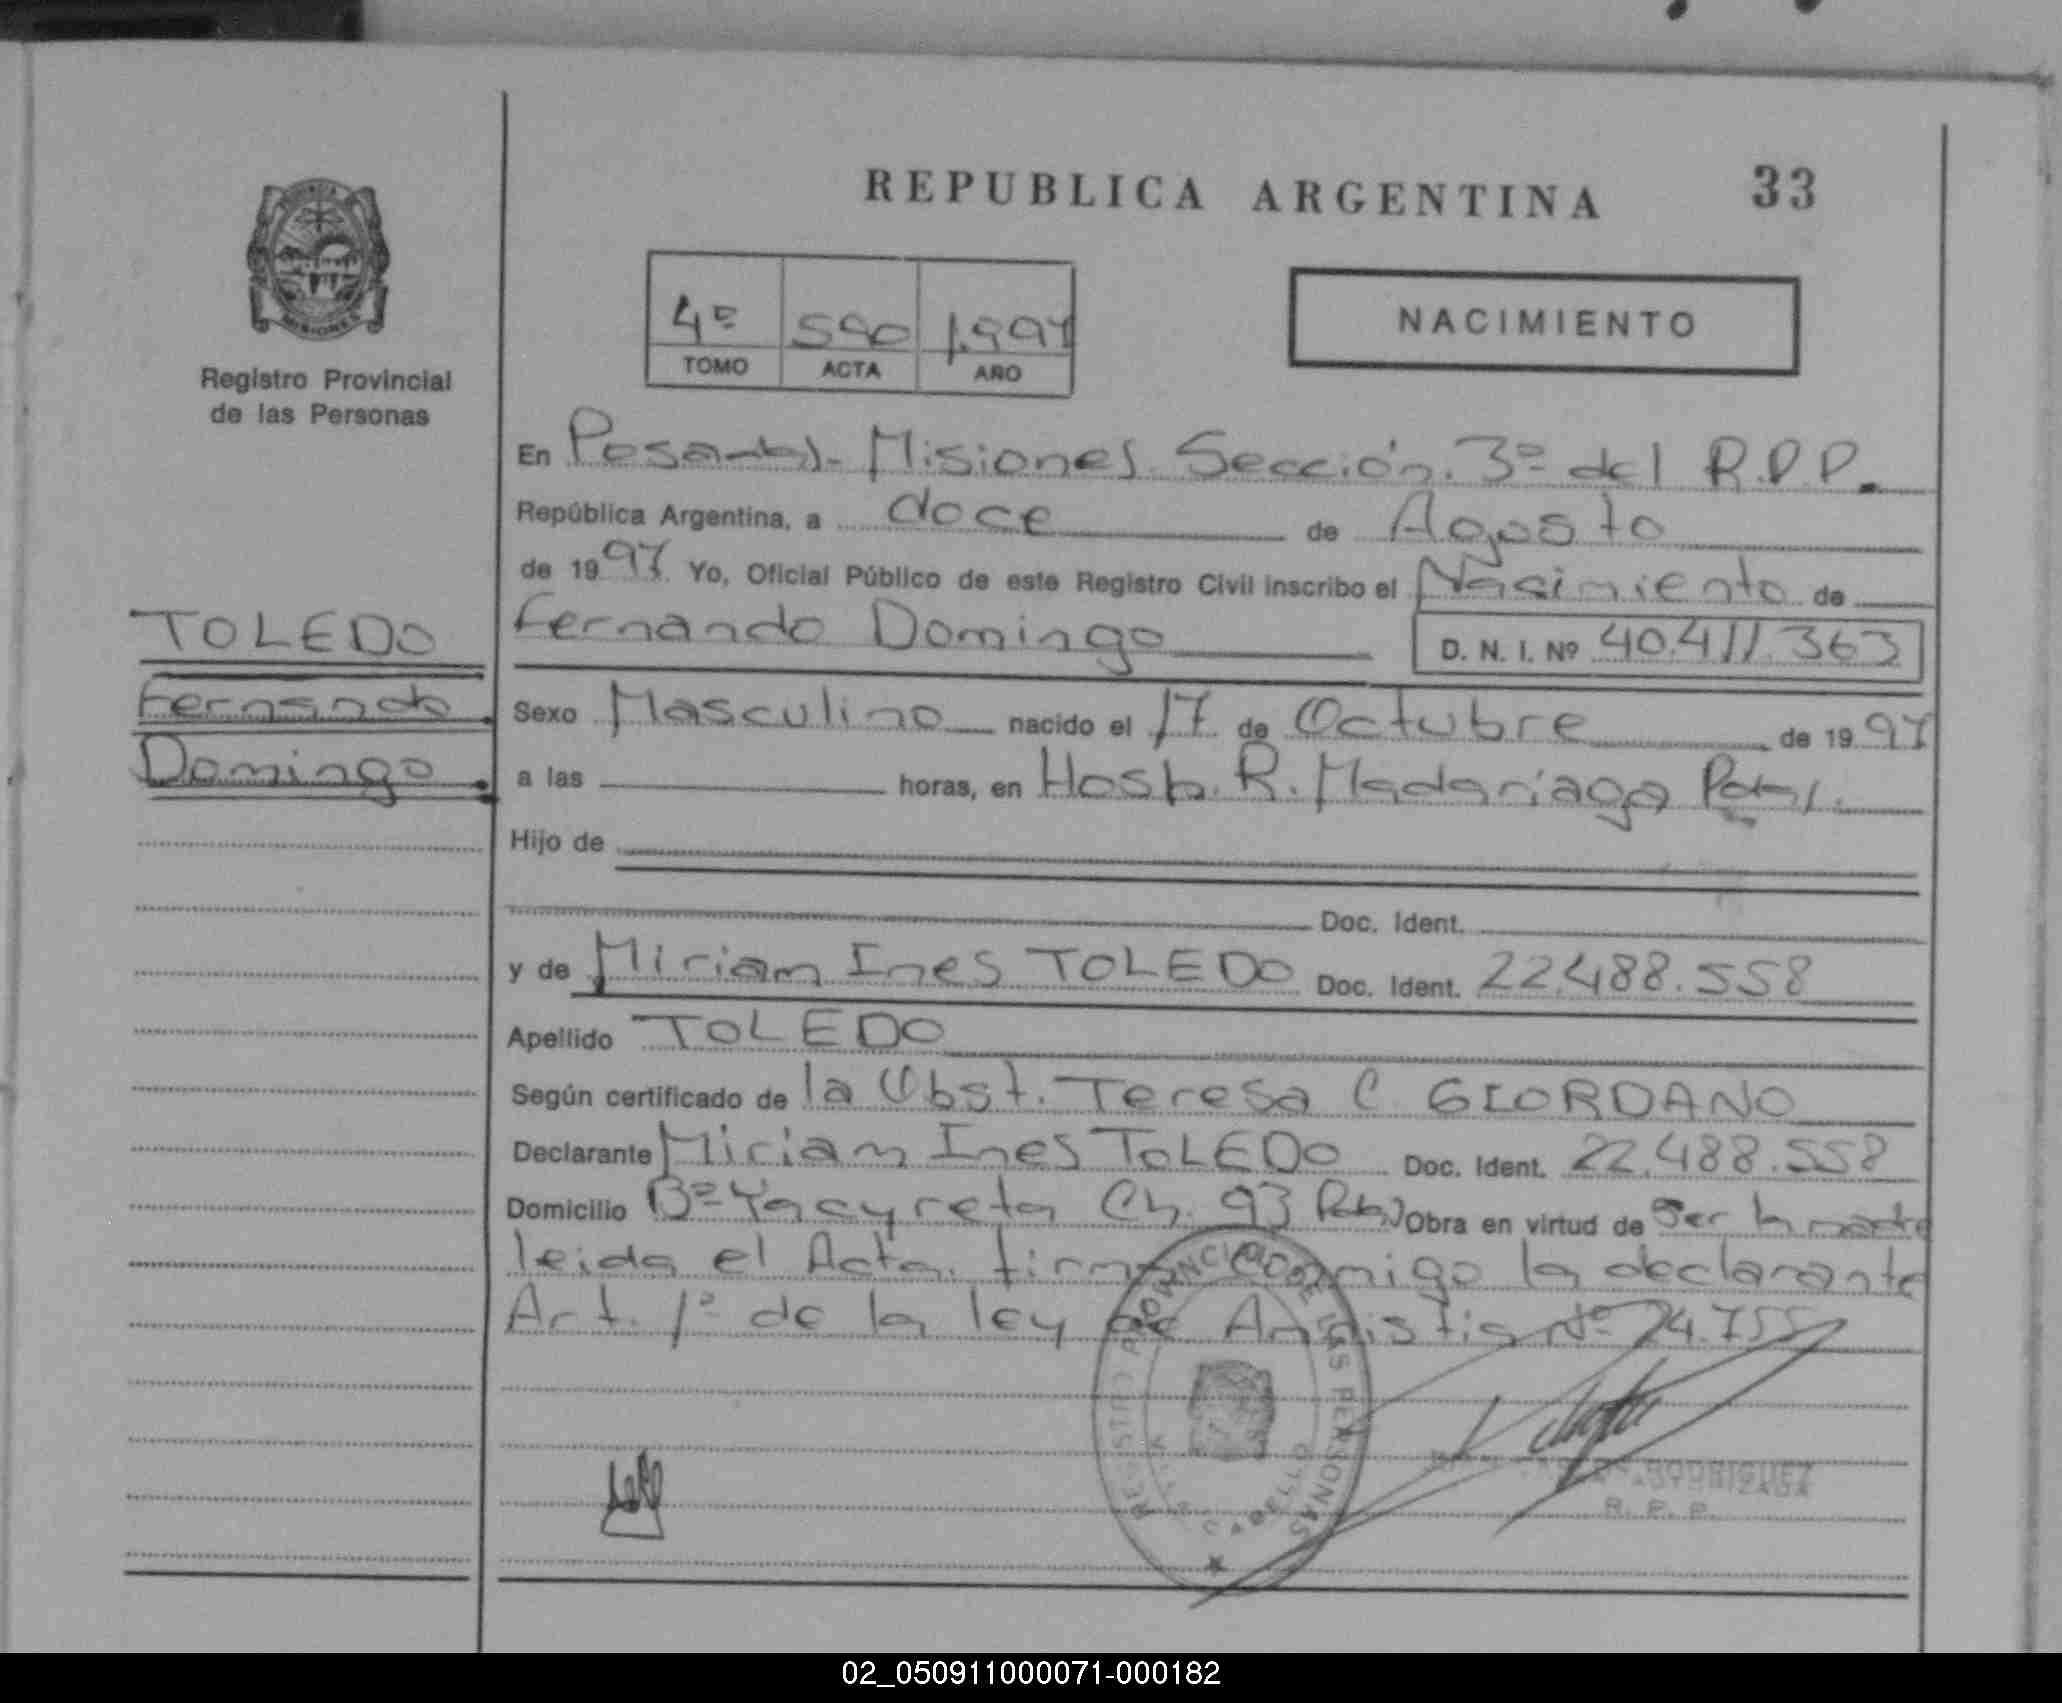 REPUBLICA ARGENTINA 33
MISIONES
Registro Provincial
de las Personas
4º 590 1.997
TOMO ACTA AÑO
NACIMIENTO
En Posadas- Misiones Sección. 3º del R.P.P.
República Argentina, a doce de Agosto
de 1997 Yo, Oficial Público de este Registro Civil inscribo el Nacimiento de
TOLEDO
Fernando
Domingo
Fernando Domingo D. N. I. Nº 40.411.363
Sexo Masculino nacido el 17 de Octubre de 1997
a las horas, en Hosp. R. Madariaga Pdas.
Hijo de
Doc. Ident.
y de Miriam Ines TOLEDO Doc. Ident. 22.488.558
Apellido TOLEDO
Según certificado de la Obst. Teresa C GIORDANO
Declarante Miriam Ines TOLEDO Doc. Ident. 22.488.558
Domicilio Bº Yacyreta Ch. 93 Pdas Obra en virtud de Ser la madre
leida el Acta. firma conmigo la declarante
Art. 1º de la ley de Amnistia Nº 24.755
REGISTRO PROVINCIAL DE LAS PERSONAS
RODRIGUEZ
AUTORIZADA
R. P. P.
02_050911000071-000182